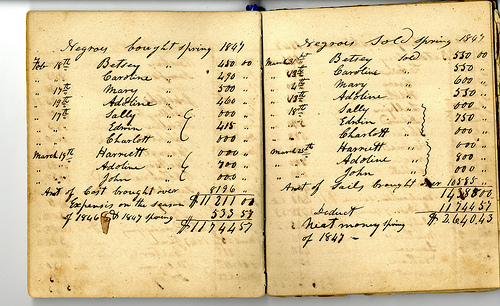 Negroes bought spring 1847
Feb 18th Betsey " 450 00
" " Caroline " 490 "
" " Mary " 500 "
" 19th Adoline " 460 "
" 17th Sally " 000 "
" " Edwin " 415
Charlott " 000 "
March 19th Harriett 000 "
Adoline " 700 "
John " 000 "
Amt of Cost brought over 8196
Expenses on the season $11211 00
of 1846 & 1847 spring 533 57
$11744 57
Negroes Sold spring 1847
Betsey sold 550 00
Caroline 550 "
Mary " 600 "
Adoline " 550 "
18th Sally 000 "
" Edwin " 750
Charlott " 000 "
March Harriett " 000 "
Adoline " 800 "
John " 000
Amt of Sails brought over 10585
14388 00
Deduct 11744 57
Neat money spring $2640,43
of 1847 –